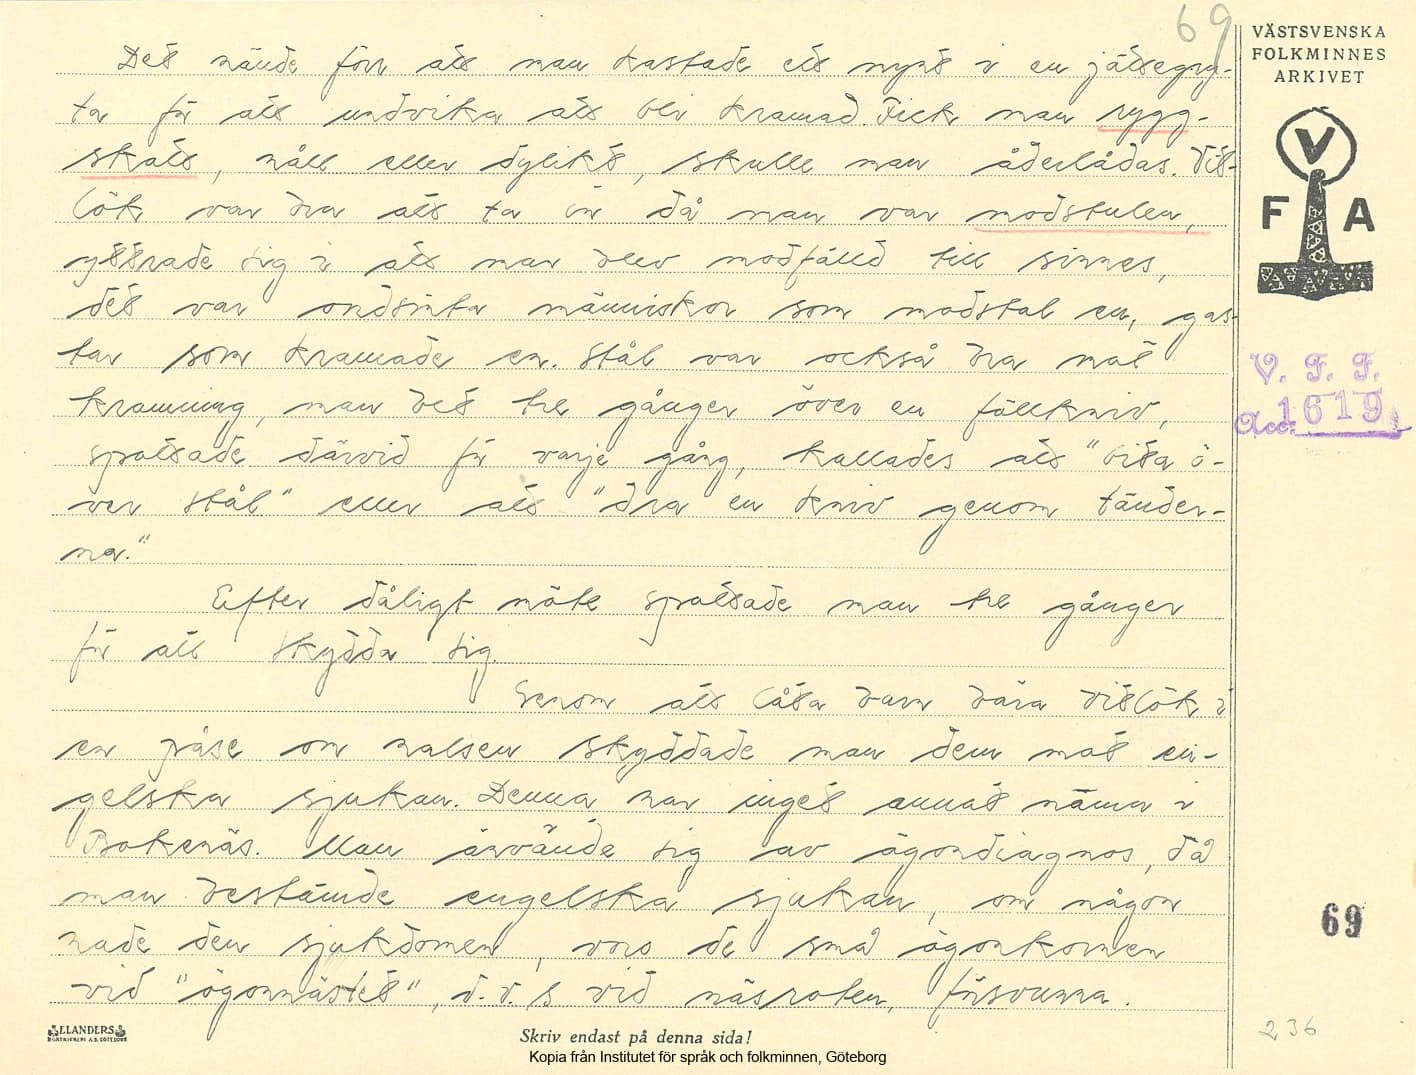 69
VÄSTSVENSKA
FOLKMINNES
ARKIVET
Det hände förr att man kastade ett mynt i en jättegry-
ta för att undvika att bli kramad. Fick man rygg-
skått, håll eller dylikt, skulle man åderlådas. Vit-
lök var bra att ta in då man var modstulen,
yttrade sig i att man blev modfälld till sinnes,
det var ondsinta människor som modstal en, gas-
tar som kramade en. Stål var också bra mot
kramning, man bet tre gånger över en fällkniv,
spottade därvid för varje gång, kallades att "bita ö-
ver stål" eller att "dra en kniv genom tänder-
na."
Efter dåligt möte spottade man tre gånger
för att skydda sig.
Genom att låta barn bära vitlök i
en påse om halsen skyddade man dem mot en-
gelska sjukan. Denna har inget annat namn i
Bokenäs. Man använde sig av ögondiagnos, då
man bestämde engelska sjukan, om någon
hade den sjukdomen, voro de små ögonkornen
vid "ögonnästet", d.v.s vid näsroten, försvunna.
V
F A
V. F. F.
Acc. 1619
69
236
ELANDERS
BOKTRYCKERI A.B. GÖTEBORG
Skriv endast på denna sida!
Kopia från Institutet för språk och folkminnen, Göteborg